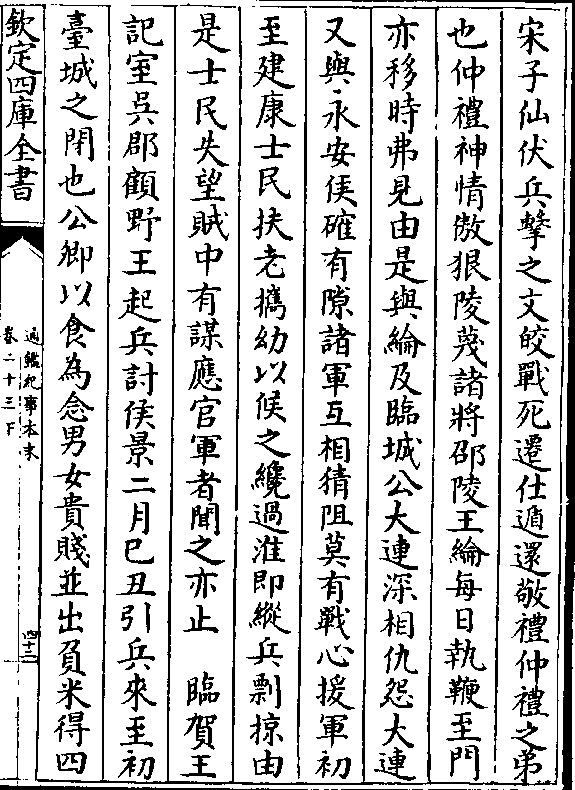 宋子仙伏兵擊之文皎戰死遷仕遁還敬禮仲禮之弟
也仲禮神情傲狠陵蔑諸將邵陵王綸每日執鞭至門
亦移時弗見由是與綸及臨城公大連深相仇怨大連
又與永安侯確有隙諸軍互相猜阻莫有戰心援軍初
至建康士民扶老攜幼以候之纔過淮即縱兵剽掠由
是士民失望賊中有謀應官軍者聞之亦止　臨賀王
記室吳郡顧野王起兵討侯景二月己丑引兵來至初
臺城之閉也公卿以食為念男女貴賤並出負米得四
欽定四庫全書
通鑑紀事本末
卷二十三下
四十二